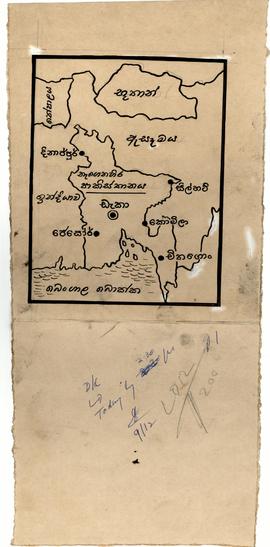 නේපාලය
භූතාන්
ඇසෑමය
දිනාජ්පූර්
නැගෙනහිර
පාකිස්තානය
සිල්හට්
ඉන්දියාව
ඩැකා
කොමිලා
ජෙසෝර්
චිතගොං
බෙංගාල බොක්ක
D/C
Today
9/12
200